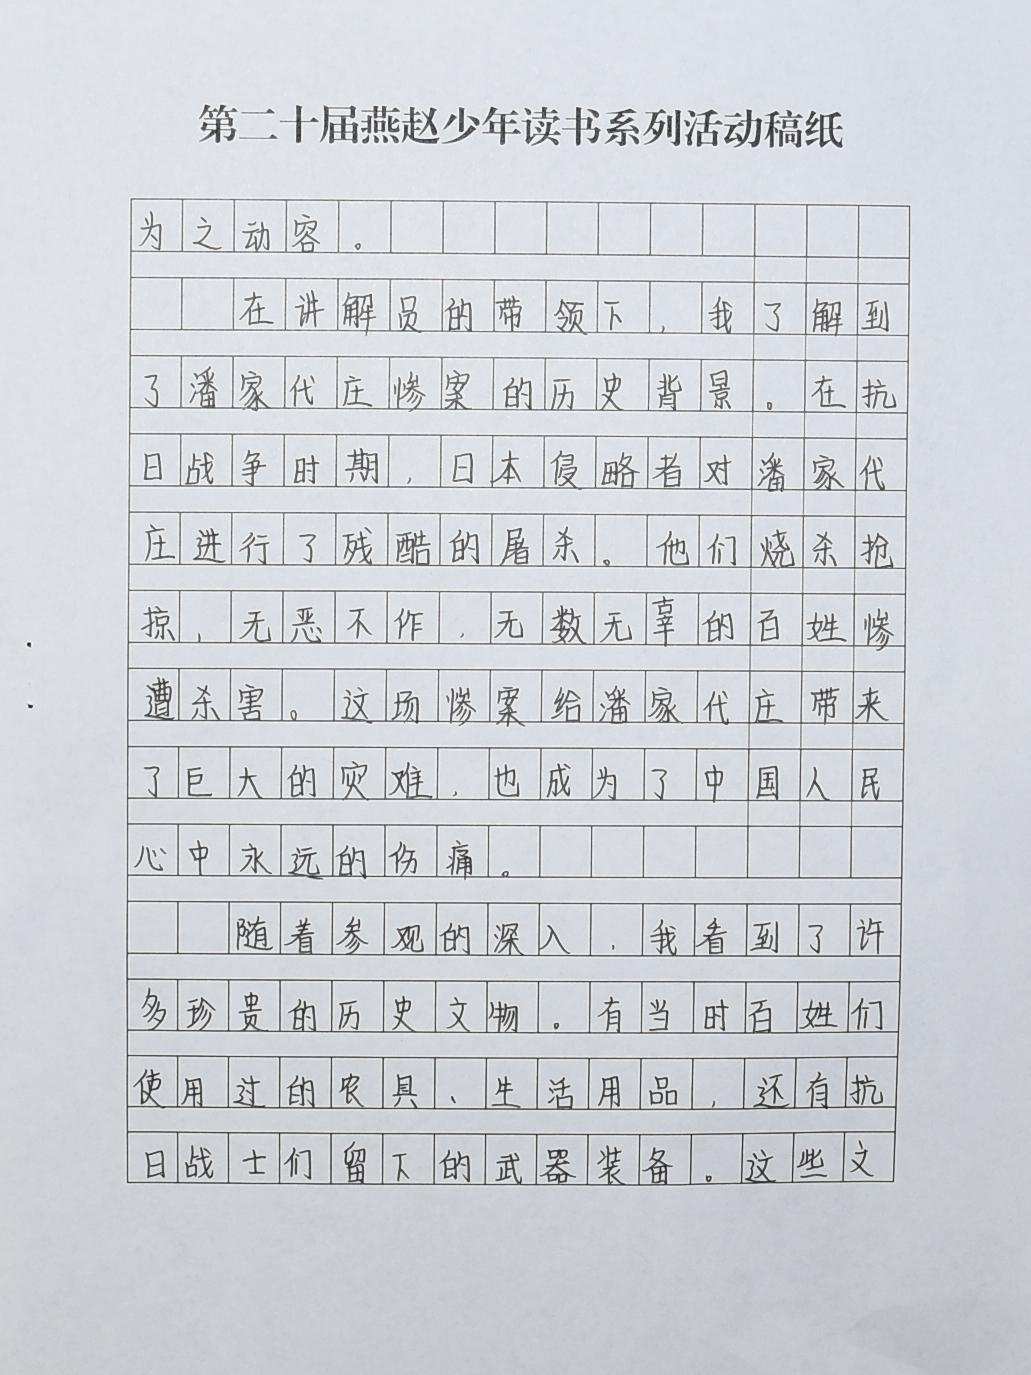 第二十届燕赵少年读书系列活动稿纸
为之动容。
在讲解员的带领下，我了解到
了潘家代庄惨案的历史背景。在抗
日战争时期，日本侵略者对潘家代
庄进行了残酷的屠杀。他们烧杀抢
掠，无恶不作，无数无辜的百姓惨
遭杀害。这场惨案给潘家代庄带来
了巨大的灾难，也成为了中国人民
心中永远的伤痛。
随着参观的深入，我看到了许
多珍贵的历史文物。有当时百姓们
使用过的农具、生活用品，还有抗
日战士们留下的武器装备。这些文